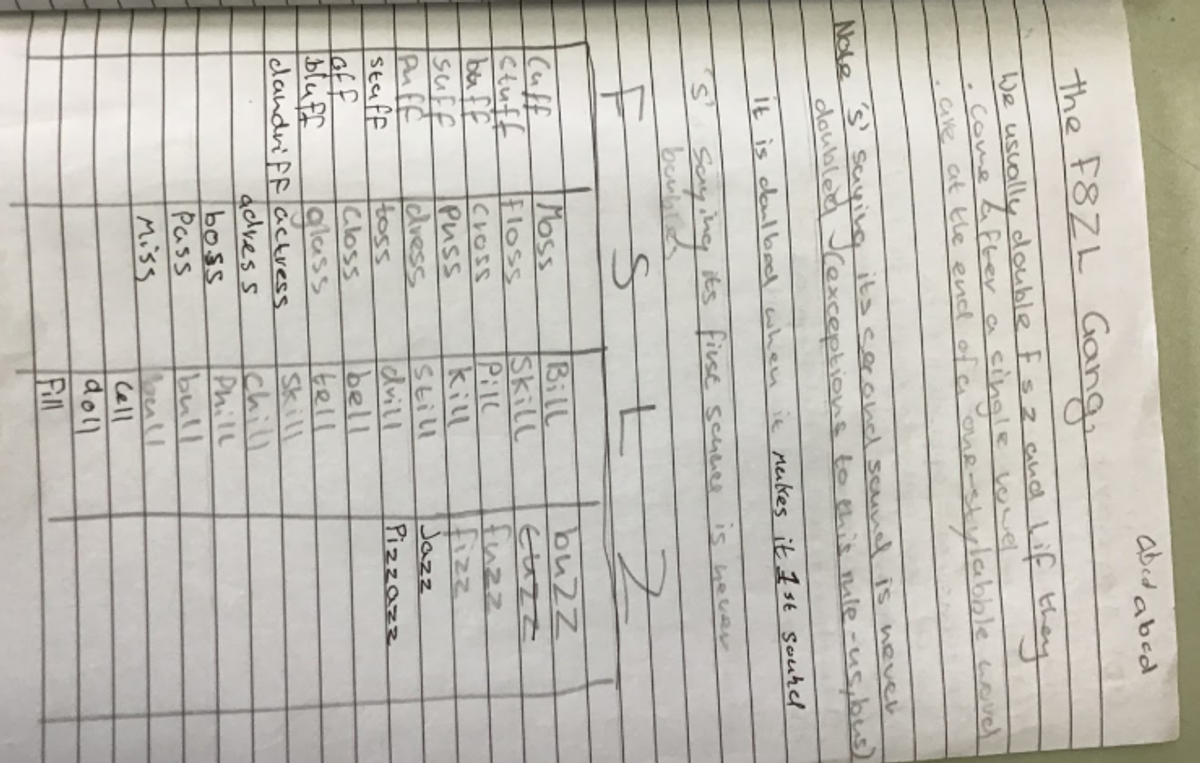 abcd abcd
The FSZL Gang
We usually double F s z and L if they
. Come after a single vowel
. are at the end of a one-stylabble
Note 's' saying its second sound is never
doubled (exceptions to this rule - us, bus)
It is doulbad when it makes it 1st sound
's' saying its first is never
F S L Z
Cuff Moss Bill buzz
Stuff floss Skill
buff cross Pill fuzz
Suff Puss Kill fizz
Puff dress Still Jazz
Stuff toss drill Pizzazz
off Closs bell
bluff glass tell
dandriff actress Skill
adress Chill
boss Phill
Pass bull
Miss
Cell
doll
Fill